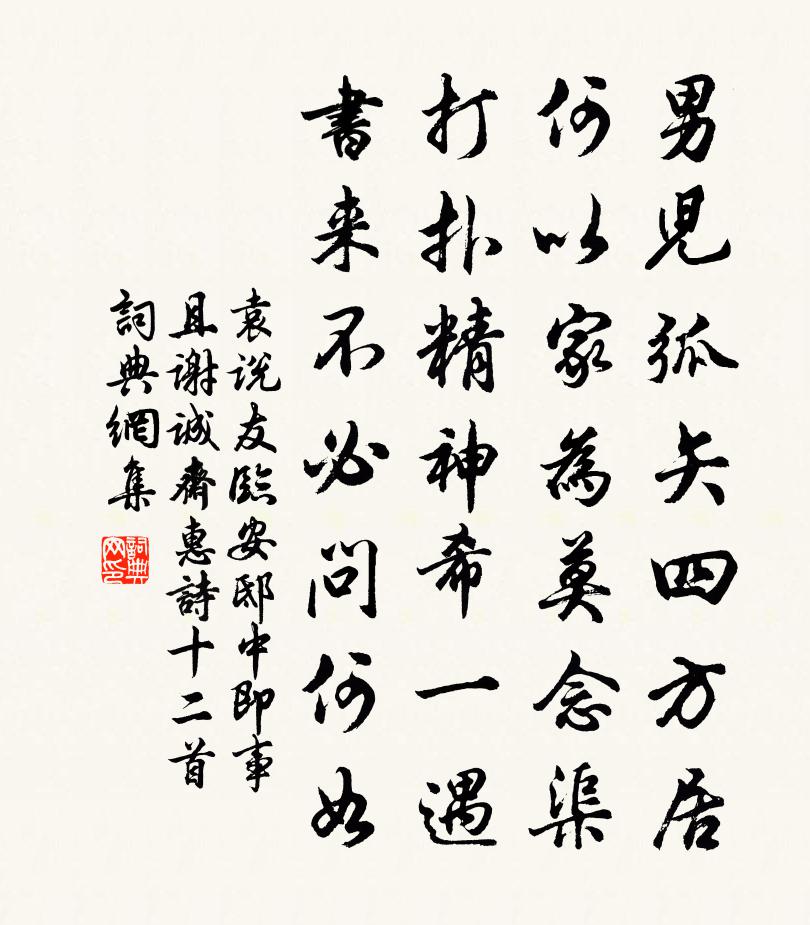 男児孤矢四方居
何以家為莫念渠
打扑精神希一遇
書来不必問何如
袁说友臨安邸中即事
且謝誠齋惠詩十二首
詞典網集
詞典網印